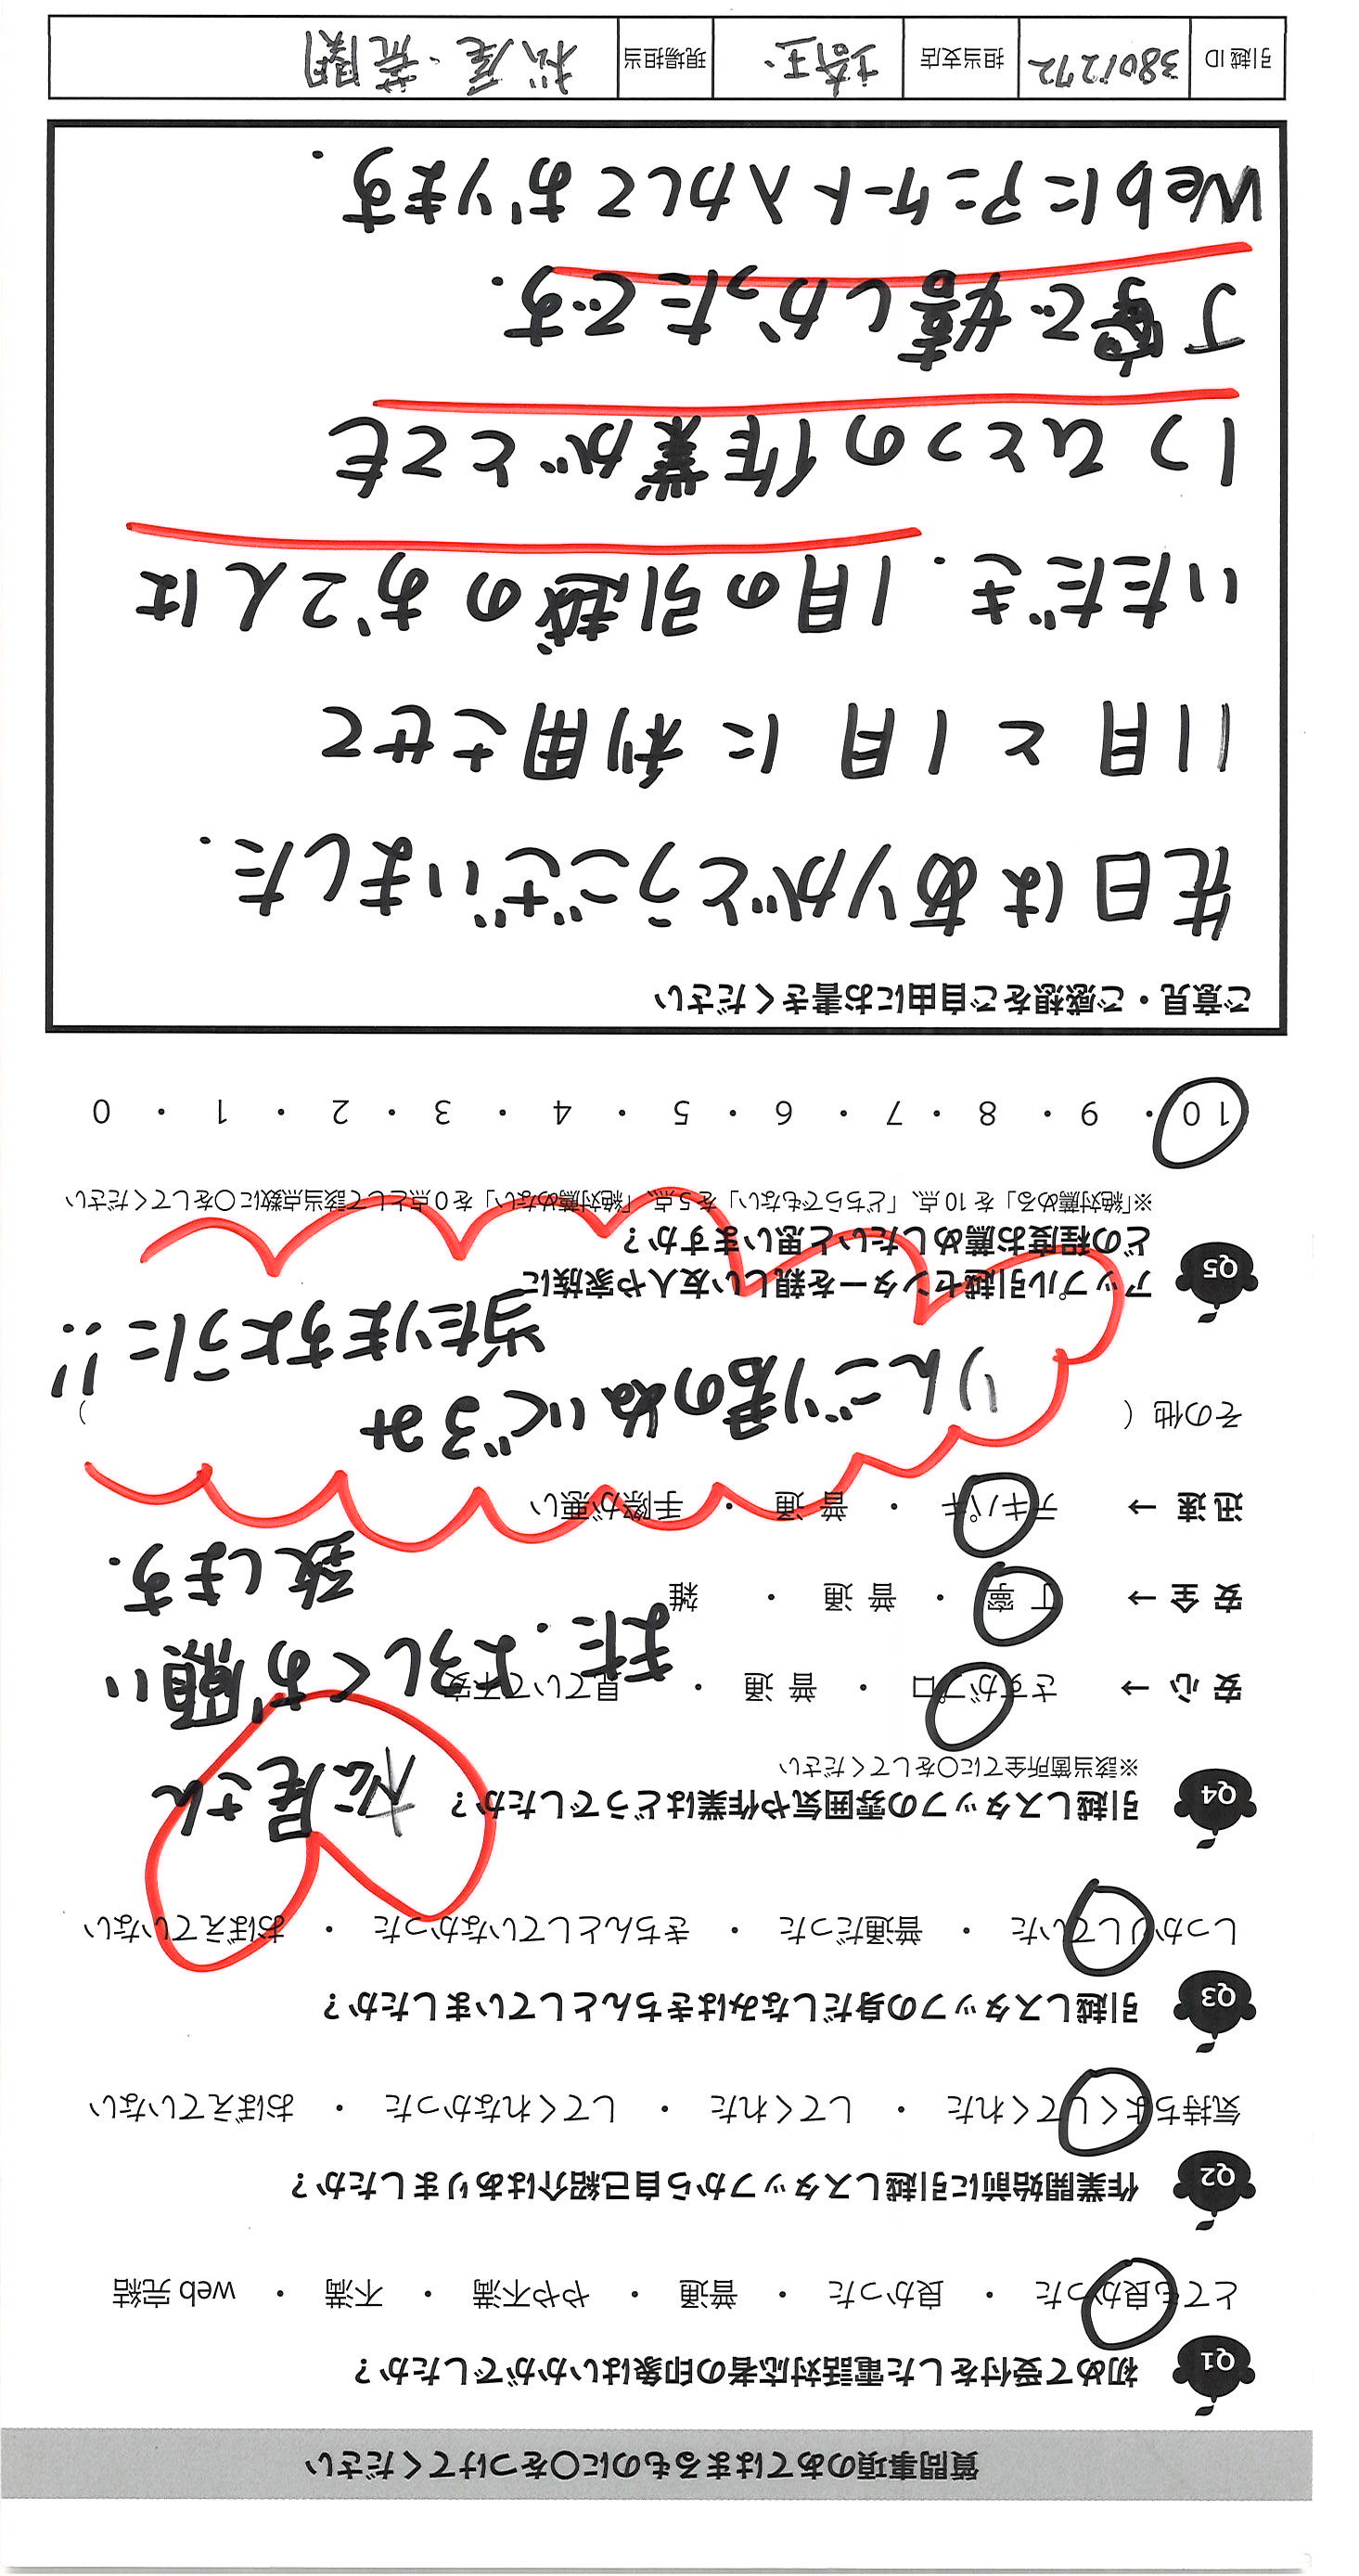 質問事項のあてはまるものに○をつけてください
Q1 初めて受付をした電話対応者の印象はいかがでしたか？
とても良かった ・ 良かった ・ 普通 ・ やや不満 ・ 不満 ・ web 完結
Q2 作業開始前に引越しスタッフから自己紹介はありましたか？
気持ちよくしてくれた ・ してくれた ・ してくれなかった ・ おぼえていない
Q3 引越しスタッフの身だしなみはきちんとしていましたか？
しっかりしていた ・ 普通だった ・ きちんとしていなかった ・ おぼえていない
Q4 引越しスタッフの雰囲気や作業はどうでしたか？
※該当箇所全てに○をしてください
松尾さん
安 心 → さすがプロ ・ 普 通 ・ 見ていて不安
また、よろしくお願い
致します.
安 全 → 丁 寧 ・ 普 通 ・ 雑
迅 速 → テキパキ ・ 普 通 ・ 手際が悪い
その他（ ）
りんごり君のぬいぐるみ
当たりますように!!
Q5 アップル引越センターを親しい友人や家族に
どの程度お薦めしたいと思いますか？
※「絶対薦める」を 10 点、「どちらでもない」を 5 点、「絶対薦めない」を 0 点として該当点数に○をしてください
10 ・ 9 ・ 8 ・ 7 ・ 6 ・ 5 ・ 4 ・ 3 ・ 2 ・ 1 ・ 0
ご意見・ご感想をご自由にお書きください
先日はありがとうございました.
11月と1月に利用させて
いただき. 1月の引越のお2人は
1つひとつの作業がとても
丁寧で嬉しかったです.
Webにアンケート入力しております.
引越 ID 3801272 担当支店 埼玉 現場担当 松尾・荒関